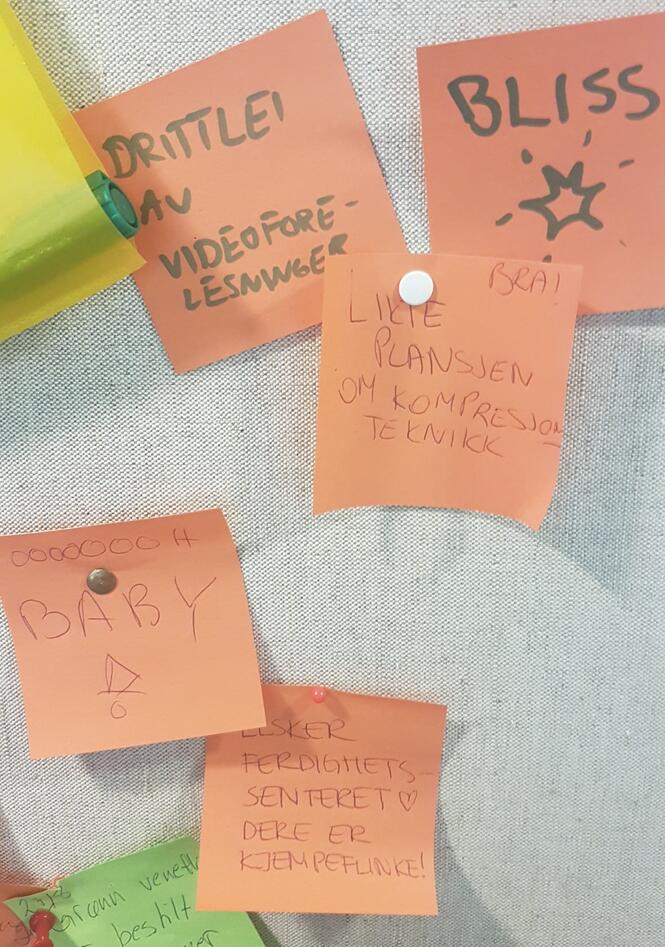 DRITTLEI
AV
VIDEOFORE-
LESNINGER
BLISS
BRA!
LIKTE
PLANSJEN
OM KOMPRESJON
TEKNIKK
OOOOOOO H
BABY
ELSKER
FERDIGHETS-
SENTERET ♡
DERE ER
KJEMPEFLINKE!
venefl
bestilt